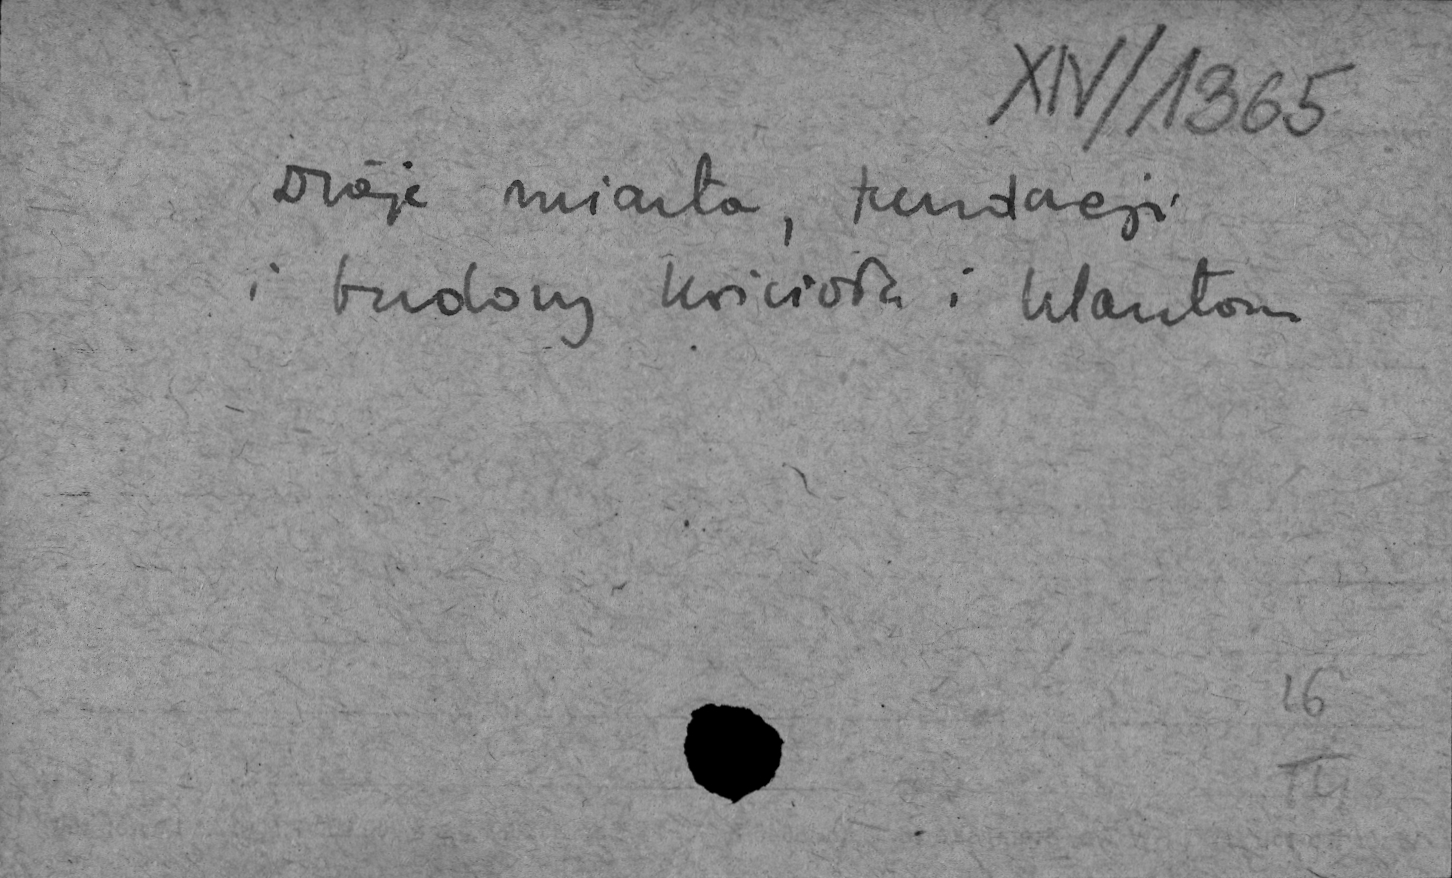 XIV/1365
Dzieje miasta, fundacji
i budowy kościoła i klasztoru
16